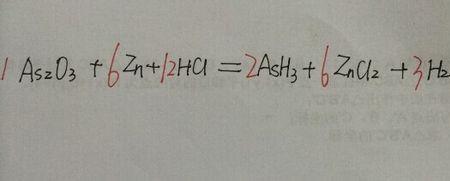 1 As₂O₃ + 6Zn + 12HCl = 2AsH₃ + 6ZnCl₂ + 3H₂